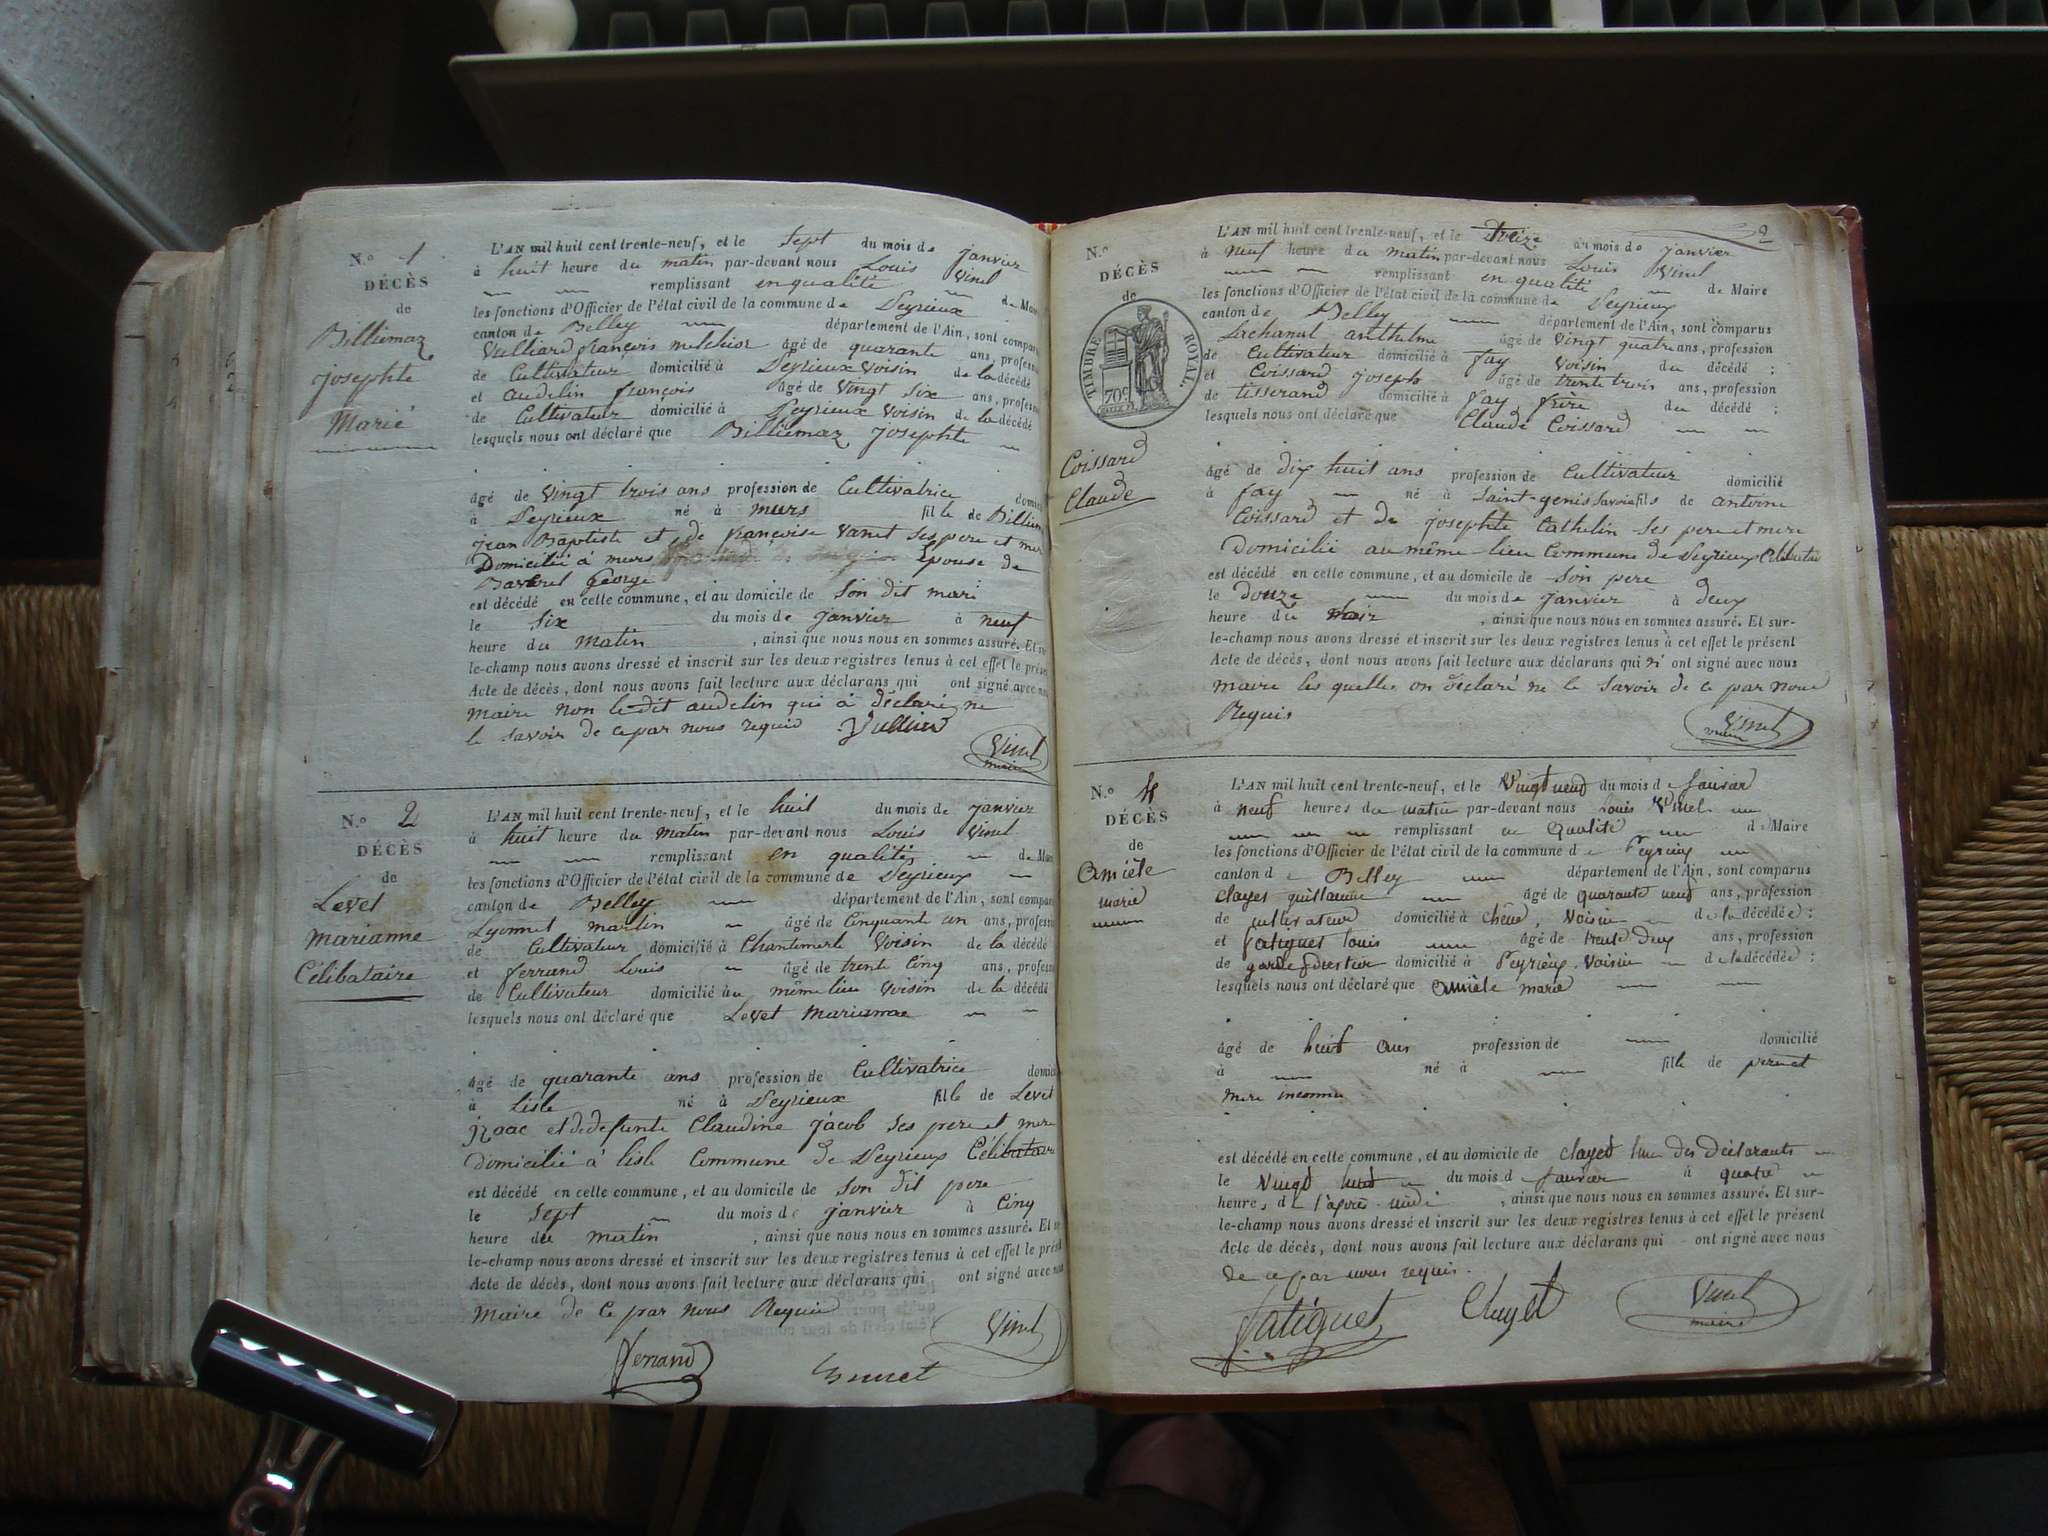 N.º 1
DÉCÈS
de
Billiemaz
Josephte
Marié
L'AN mil huit cent trente-neuf, et le sept du mois de janvier
à huit heure du matin par-devant nous Louis Vinel
remplissant en qualité de Maire
les fonctions d'Officier de l'état civil de la commune de Peyrieux
canton de Belley département de l'Ain, sont compar
Vulliard françois melchior âgé de quarante ans, profess
de Cultivateur domicilié à Peyrieux voisin de la décédé
et audelin françois âgé de vingt six ans, profess
de Cultivateur domicilié à Peyrieux voisin de la décédé
lesquels nous ont déclaré que Billiemaz Josephte
âgé de vingt trois ans profession de Cultivatrice domici
à Peyrieux né à murs fille de Billiem
jean Baptiste et de françoise vanet ses pere et mere
Domicilié à murs épouse de
George
est décédé en cette commune, et au domicile de son dit mari
le six du mois de janvier à neuf
heure du matin, ainsi que nous nous en sommes assuré. Et su
le-champ nous avons dressé et inscrit sur les deux registres tenus à cet effet le prése
Acte de décès, dont nous avons fait lecture aux déclarans qui ont signé avec nou
maire non le dit audelin qui à déclaré ne
le savoir de ce par nous requis Vulliard
Vinel
maire
N.º 2
DÉCÈS
de
Levet
marianne
Célibataire
L'AN mil huit cent trente-neuf, et le huit du mois de janvier
à huit heure du matin par-devant nous Louis Vinel
remplissant en qualité de Maire
les fonctions d'Officier de l'état civil de la commune de Peyrieux
canton de Belley département de l'Ain, sont compar
Lyonnet martin âgé de Cinquant un ans, profess
de Cultivateur domicilié à Chantemerle voisin de la décédé
et ferrand Louis âgé de trente cinq ans, profess
de Cultivateur domicilié au même lieu voisin de la décédé
lesquels nous ont déclaré que Levet marianne
âgé de quarante ans profession de Cultivatrice domici
à Lisle né à Peyrieux fille de Levet
izaac et de defunte Claudine jacob ses pere et mere
domicilié à lisle Commune de Peyrieux Célibataire
est décédé en cette commune, et au domicile de son dit pere
le sept du mois de janvier à Cinq
heure du matin, ainsi que nous nous en sommes assuré. Et s
le-champ nous avons dressé et inscrit sur les deux registres tenus à cet effet le prés
Acte de décès, dont nous avons fait lecture aux déclarans qui ont signé avec nou
maire de ce par nous Requis
Vinel
ferrand
N.º
DÉCÈS
de
TIMBRE ROYAL.
70c
Coissard
Claude
2
L'AN mil huit cent trente-neuf, et le treize du mois de janvier
à neuf heure du matin par-devant nous Louis Vinel
remplissant en qualité de Maire
les fonctions d'Officier de l'état civil de la commune de Peyrieux
canton de Belley département de l'Ain, sont comparus
Lachanal anthelme âgé de vingt quatre ans, profession
de Cultivateur domicilié à fay voisin du décédé ;
et Coissard joseph âgé de trente trois ans, profession
de tisserand domicilié à fay frère du décédé ;
lesquels nous ont déclaré que Claude Coissard
âgé de dix huit ans profession de Cultivateur domicilié
à fay né à Saint-genis Savoie fils de antoine
Coissard et de josephte Cathelin ses pere et mere
Domicilié au même lieu Commune de Peyrieux Célibataire
est décédé en cette commune, et au domicile de son pere
le douze du mois de janvier à deux
heure du, ainsi que nous nous en sommes assuré. Et sur-
le-champ nous avons dressé et inscrit sur les deux registres tenus à cet effet le présent
Acte de décès, dont nous avons fait lecture aux déclarans qui n' ont signé avec nous
maire les quelles on déclaré ne le savoir de ce par nous
Requis
Vinel
maire
N.º 4
DÉCÈS
de
Amièle
marie
L'AN mil huit cent trente-neuf, et le Vingt neuf du mois de Janvier
à neuf heures du matin par-devant nous Louis Vinel
remplissant en Qualité de Maire
les fonctions d'Officier de l'état civil de la commune de Peyrieux
canton de Belley département de l'Ain, sont comparus
Clayet guillaume âgé de quarante neuf ans, profession
de cultivateur domicilié à chêne, voisin de la décédée :
et fatiguet Louis âgé de trente deux ans, profession
de garde forestier domicilié à Peyrieux voisin de la décédée ;
lesquels nous ont déclaré que Amièle marie
âgé de huit ans profession de domicilié
à né à fille de père et
mere inconnu
est décédé en cette commune, et au domicile de clayet l'un des déclarants
le vingt huit du mois de Janvier à quatre
heures de l'après midi, ainsi que nous nous en sommes assuré. Et sur-
le-champ nous avons dressé et inscrit sur les deux registres tenus à cet effet le présent
Acte de décès, dont nous avons fait lecture aux déclarans qui ont signé avec nous
de ce par nous requis.
fatiguet Clayet Vinel
maire